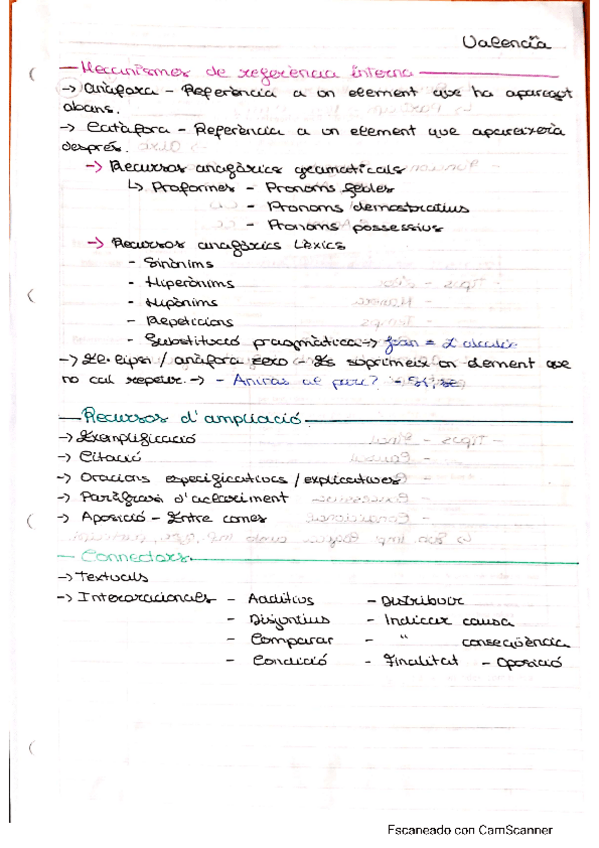 Valencià
Mecanismes de referència interna
-> Anàfora - Referència a un element que ha aparegut
abans.
-> Catàfora - Referència a un element que apareixerà
després.
-> Recursos anafòrics gramaticals
↳ Proformes - Pronoms febles
- Pronoms demostratius
- Pronoms possessius
-> Recursos anafòrics Lèxics
- Sinònims
- Hiperònims
- Hipònims
- Repeticions
- Substitució pragmàtica -> Joan = L'alcalde
-> El·lipsi / anàfora zero - Es suprimeix un element que
no cal repetir. -> - Aniras al parc? - Sí,
Recursos d'ampliació
-> Exemplificació
-> Citació
-> Oracions especificatives / explicatives
-> Paràfrasi d'aclariment
-> Aposició - Entre comes
- Connectors
-> Textuals
-> Interoracionals - Additius - Distribuir
- Disjuntius - Indicar causa
- Comparar - " conseqüència
- Condició - Finalitat - Oposició
Escaneado con CamScanner